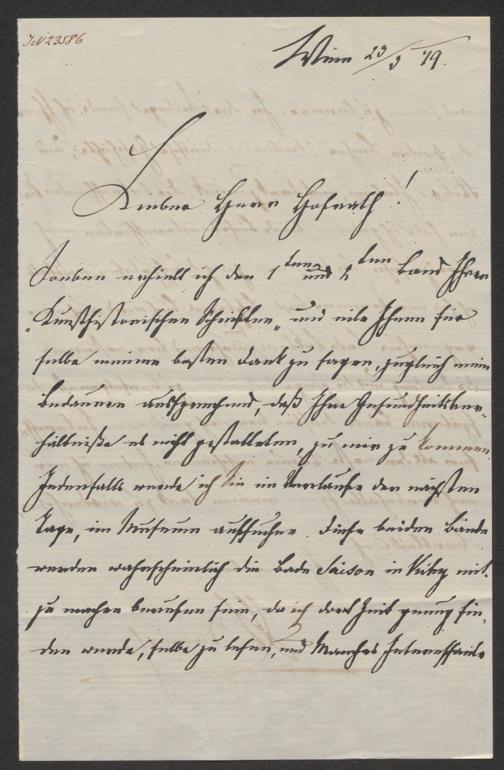 IN 23586
Wien 23/3 79.
Lieber Herr Hofrath!
Soeben erhielt ich den 1ten und 2ten Band Ihrer
„Kunsthistorischen Schriften" und eile Ihnen für
selbe meinen besten Dank zu sagen, zugleich mein
Bedauern aussprechend, daß Ihre Gesundheitsver-
hältniße es nicht gestatteten, zu mir zu kommen.
Jedenfalls werde ich Sie im Verlaufe der nächsten
Tage, im Museum aufsuchen. Diese beiden Bände
werden wahrscheinlich die Bade Saison in Vichy mit-
zu machen berufen sein, da ich dort Zeit genug fin-
den werde, selbe zu lesen, und Manches Interessante